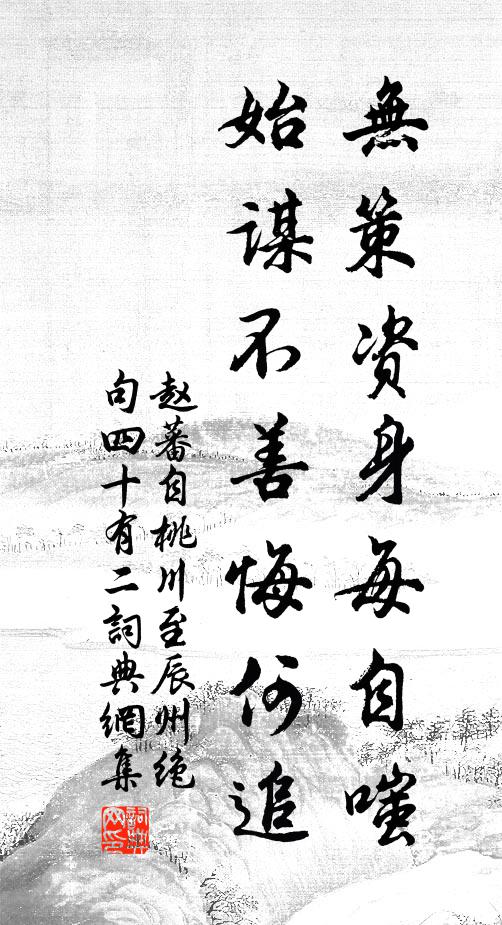 無策資身每自嗤
始謀不善悔何追
赵蕃自桃川至辰州绝
句四十有二詞典網集